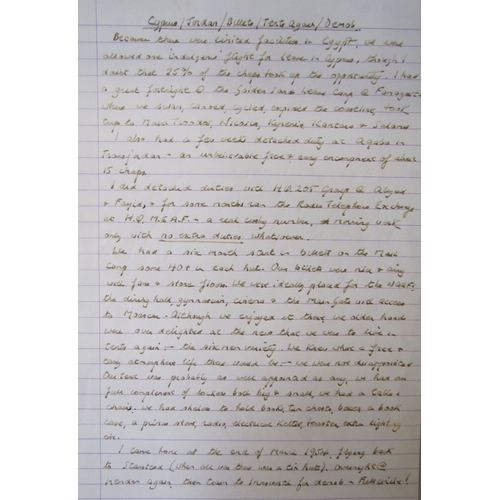 Cyprus/Jordan/Billets/Tents Again/Demob.
Because there were limited facilities in Egypt, we were
allowed one 'indulgence' flight for leave in Cyprus, though I
doubt that 25% of the chaps took up the opportunity. I had
a great fortnight @ the Golden Sands leave camp @ Famagusta
where we swam, canoed, cycled, explored the coastline, took
trips to Mount Troodos, Nicosia, Kyrenia, &  Salamis
I also had a few weeks detached duty at Aqaba in
Transjordan - an unbelievable free & easy encampment of about
15 chaps.
I did detached duties with H.Q. 205 Group @ Abyad
& Fayid, & for some months ran the Radio Telephone Exchange
at H.Q. M.E.A.F. - a real cushy number, morning work
only with no extra duties whatsoever.
We had a six month stint in billets on the Main
Camp some 40+ in each hut. Our billets were nice & airy
with fans & stone floors. We were ideally placed for the NAAFI,
the dining hall, gymnasium, cinema & the Main Gate with access
to Moascar. Although we enjoyed it there, we older hands
were over delighted at the news that we were to live in
tents again :- the six men variety. We knew what a free &
easy atmosphere life there would be :- we were not disappointed
Our tent was probably as well appointed as any, we had our
full complement of lockers both big & small, we had a table &
chairs, we had shelves to hold books, tea chests, boxes, a book
case, a primus stove, radio, electrical kettle, toaster, extra lighting
etc.
I came home at the end of March 1954, flying back
to Stansted (when all was there was a tin hut), overnight @
Hendon again, then train to Innsworth for demob -